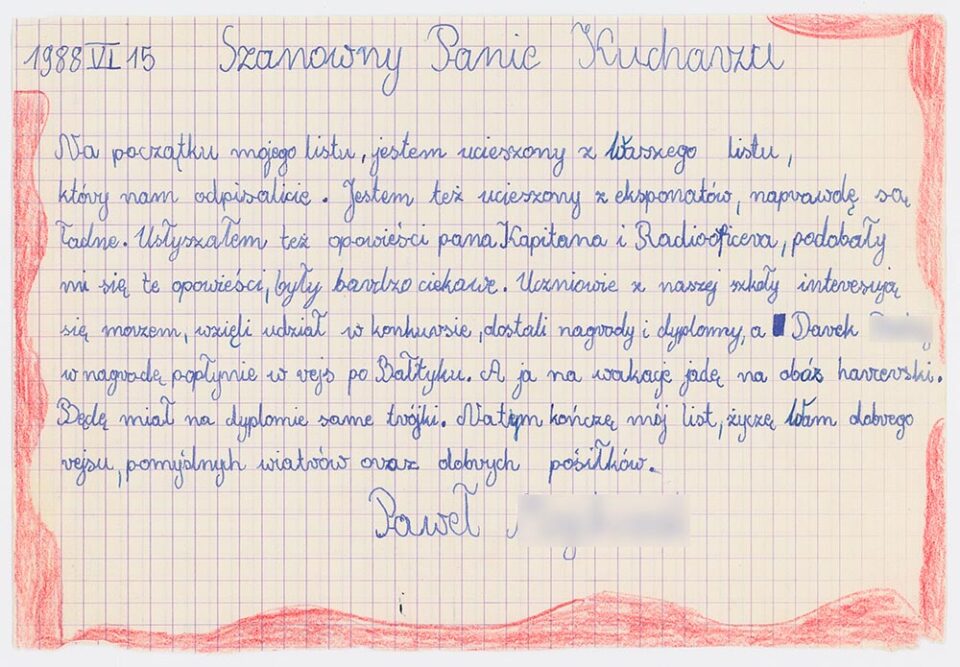 1988 VI 15 Szanowny Panie Kucharzu
Na początku mojego listu, jestem ucieszony z Waszego listu,
który nam odpisalicie. Jestem też ucieszony z eksponatów, naprawdę są
ładne. Usłyszałem też opowieści pana Kapitana i Radiooficera, podobały
mi się te opowieści, były bardzo ciekawe. Uczniowie z naszej szkoły interesują
się morzem, wzięli udział w konkursie, dostali nagrody i dyplomy, a Darek
w nagrodę popłynie w rejs po Bałtyku. A ja na wakacje jadę na obóz harcerski.
Będę miał na dyplomie same trójki. Na tym kończę mój list, życzę Wam dobrego
rejsu, pomyślnych wiatrów oraz dobrych posiłków.
Paweł